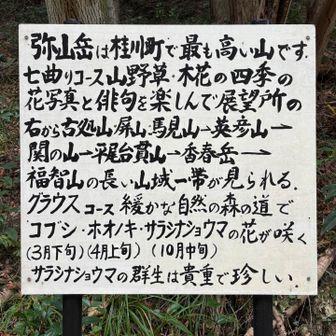 弥山岳は桂川町で最も高い山です.
七曲りコース山野草・木花の四季の
花写真と俳句を楽しんで展望所の
右から古処山・屏山・馬見山→英彦山→
関の山→平尾台貫山→香春岳→
福智山の長い山域一帯が見られる.
グラウスコース緩かな自然の森の道で
コブシ・ホオノキ・サラシナショウマの花が咲く
(3月下旬)(4月上旬)(10月中旬)
サラシナショウマの群生は貴重で珍しい.